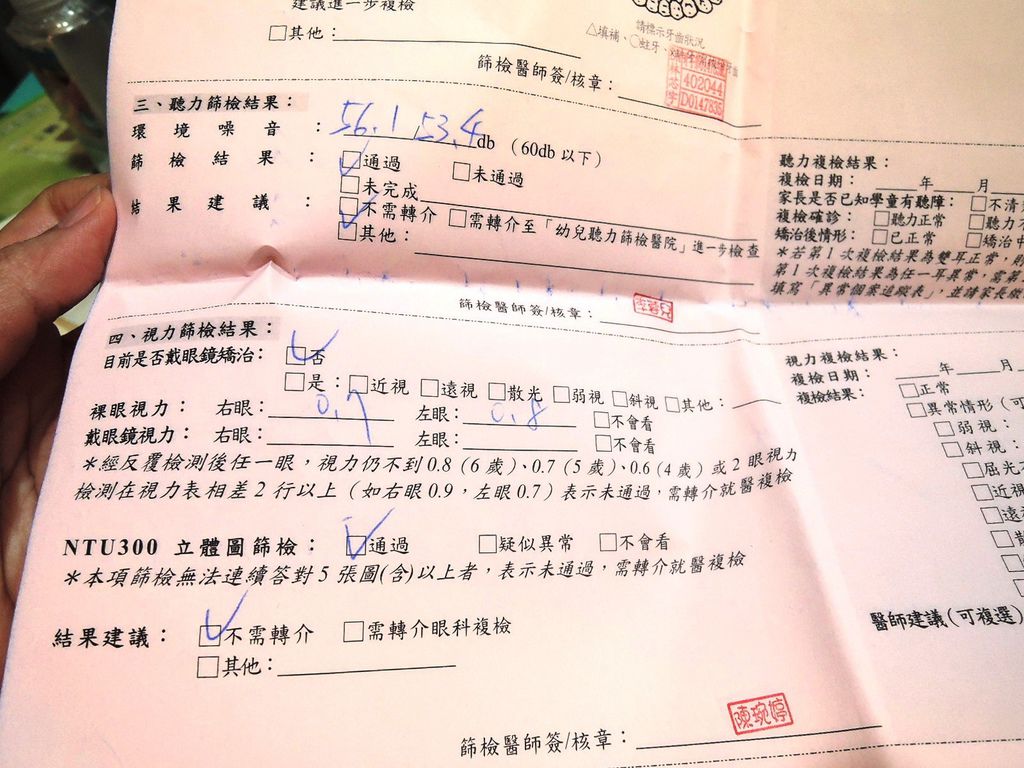 建議進一步複檢
□其他：
請標示牙齒狀況
△填補、○蛀牙、
篩檢醫師簽/核章：
402044
D0147835
三、聽力篩檢結果：
環境噪音：56.1 53.4 db（60db 以下）
篩檢結果：☑通過 □未通過
□未完成
結果建議：☑不需轉介 □需轉介至「幼兒聽力篩檢醫院」進一步檢查
□其他：
篩檢醫師簽/核章：
聽力複檢結果：
複檢日期： 年 月
家長是否已知學童有聽障：□不清
複檢確診：□聽力正常 □聽力
矯治後情形：□已正常 □矯治中
＊若第 1 次複檢結果為雙耳正常，則
第 1 次複檢結果為任一耳異常，需第
填寫「異常個案追蹤表」，並請家長繳
四、視力篩檢結果：
目前是否戴眼鏡矯治：☑否
□是：□近視 □遠視 □散光 □弱視 □斜視 □其他：
裸眼視力： 右眼：0.7 左眼：0.8 □不會看
戴眼鏡視力： 右眼： 左眼： □不會看
＊經反覆檢測後任一眼，視力仍不到 0.8 (6 歲)、0.7 (5 歲)、0.6 (4 歲) 或 2 眼視力
檢測在視力表相差 2 行以上（如右眼 0.9，左眼 0.7）表示未通過，需轉介就醫複檢
NTU300 立體圖篩檢：☑通過 □疑似異常 □不會看
＊本項篩檢無法連續答對 5 張圖(含)以上者，表示未通過，需轉介就醫複檢
結果建議：☑不需轉介 □需轉介眼科複檢
□其他：
篩檢醫師簽/核章：陳琬婷
視力複檢結果：
複檢日期： 年 月
複檢結果：□正常
□異常情形（可
□弱視：
□斜視：
□屈光
□近視
□遠
醫師建議(可複選)